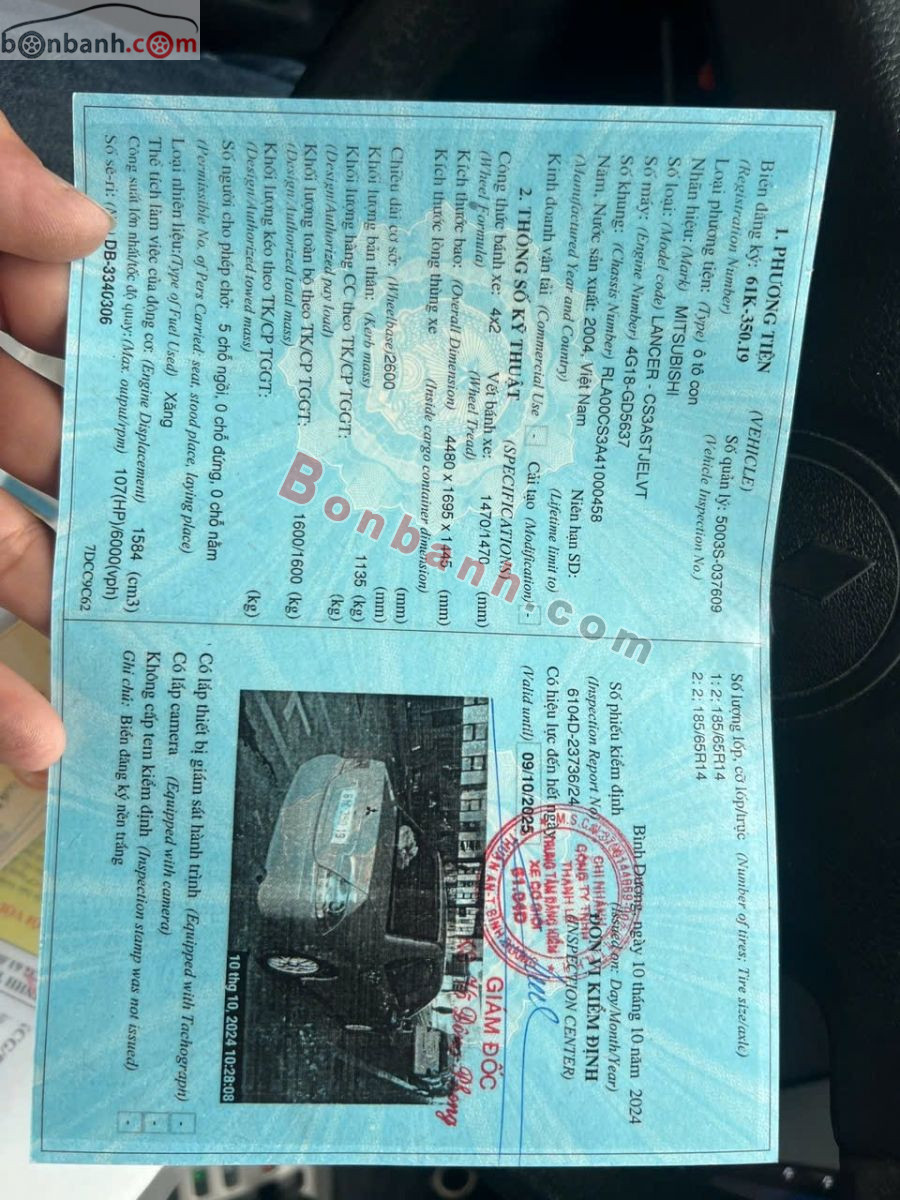 bonbanh.com
1. PHƯƠNG TIỆN (VEHICLE)
Biển đăng ký: 61K-350.19 Số quản lý: 5003S-037609
(Registration Number) (Vehicle Inspection No.)
Loại phương tiện: (Type) ô tô con
Nhãn hiệu: (Mark) MITSUBISHI
Số loại: (Model code) LANCER - CS3ASTJELVT
Số máy: (Engine Number) 4G18-GD5637
Số khung: (Chassis Number) RLA00CS3A41000458
Năm, Nước sản xuất: 2004, Việt Nam Niên hạn SD:
(Manufactured Year and Country) (Lifetime limit to)
Kinh doanh vận tải (Commercial Use) - Cải tạo (Modification) -
2. THÔNG SỐ KỸ THUẬT (SPECIFICATIONS)
Công thức bánh xe: 4x2 Vết bánh xe: 1470/1470 (mm)
(Wheel Formula) (Wheel Tread)
Kích thước bao: (Overall Dimension) 4480 x 1695 x 1445 (mm)
Kích thước lòng thùng xe (mm)
(Inside cargo container dimension)
Chiều dài cơ sở: (Wheelbase) 2600 (mm)
Khối lượng bản thân: (Kerb mass) 1135 (kg)
Khối lượng hàng CC theo TK/CP TGGT: (kg)
(Design/Authorized pay load)
Khối lượng toàn bộ theo TK/CP TGGT: 1600/1600 (kg)
(Design/Authorized total mass)
Khối lượng kéo theo TK/CP TGGT: (kg)
(Design/Authorized towed mass)
Số người cho phép chở: 5 chỗ ngồi, 0 chỗ đứng, 0 chỗ nằm
(Permissible No. of Pers Carried: seat, stood place, laying place)
Loại nhiên liệu: (Type of Fuel Used) Xăng
Thể tích làm việc của động cơ: (Engine Displacement) 1584 (cm3)
Công suất lớn nhất/tốc độ quay: (Max. output/rpm) 107(HP)/6000(vph)
Số sê-ri: DB-3340306 7DCC9C62
Số lượng lốp, cỡ lốp/trục (Number of tires; Tire size/axle)
1: 2; 185/65R14
2: 2; 185/65R14
Bình Dương, ngày 10 tháng 10 năm 2024
(Issued on: Day/Month/Year)
Số phiếu kiểm định ĐƠN VỊ KIỂM ĐỊNH
(Inspection Report No) (INSPECTION CENTER)
6104D-23736/24
Có hiệu lực đến hết ngày
(Valid until) 09/10/2025
CHI NHÁNH
CÔNG TY TNHH
TRUNG TÂM ĐĂNG KIỂM
XE CƠ GIỚI
61.04D
GIÁM ĐỐC
10 thg 10, 2024 10:28:08
Có lắp thiết bị giám sát hành trình (Equipped with Tachograph) -
Có lắp camera (Equipped with camera) -
Không cấp tem kiểm định (Inspection stamp was not issued) -
Ghi chú: Biển đăng ký nền trắng